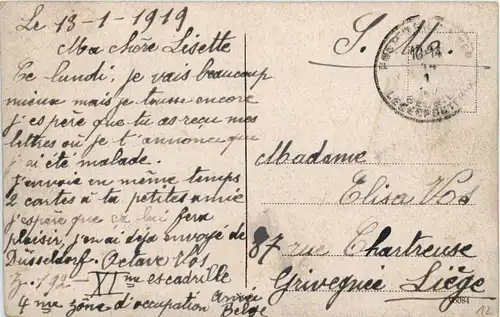 Le 13-1-1919
Ma chère Lisette
Ce lundi, je vais beaucoup
mieux mais je tousse encore
j'espère que tu as reçu mes
lettres où je t'annonce que
j'ai été malade.
J'envoie en même temps
2 cartes à ta petite amie
j'espère que ca lui fera
plaisir, j'en ai déja envoyé de
Dusseldorf. Octave Vos
Z. 192 - XIme escadrille
4me zône d'occupation Armée
Belge
S. M.
10-14
14
1
Madame
Elisa Vos
87 rue Chartreuse
Grivegnée Liége
95084
12